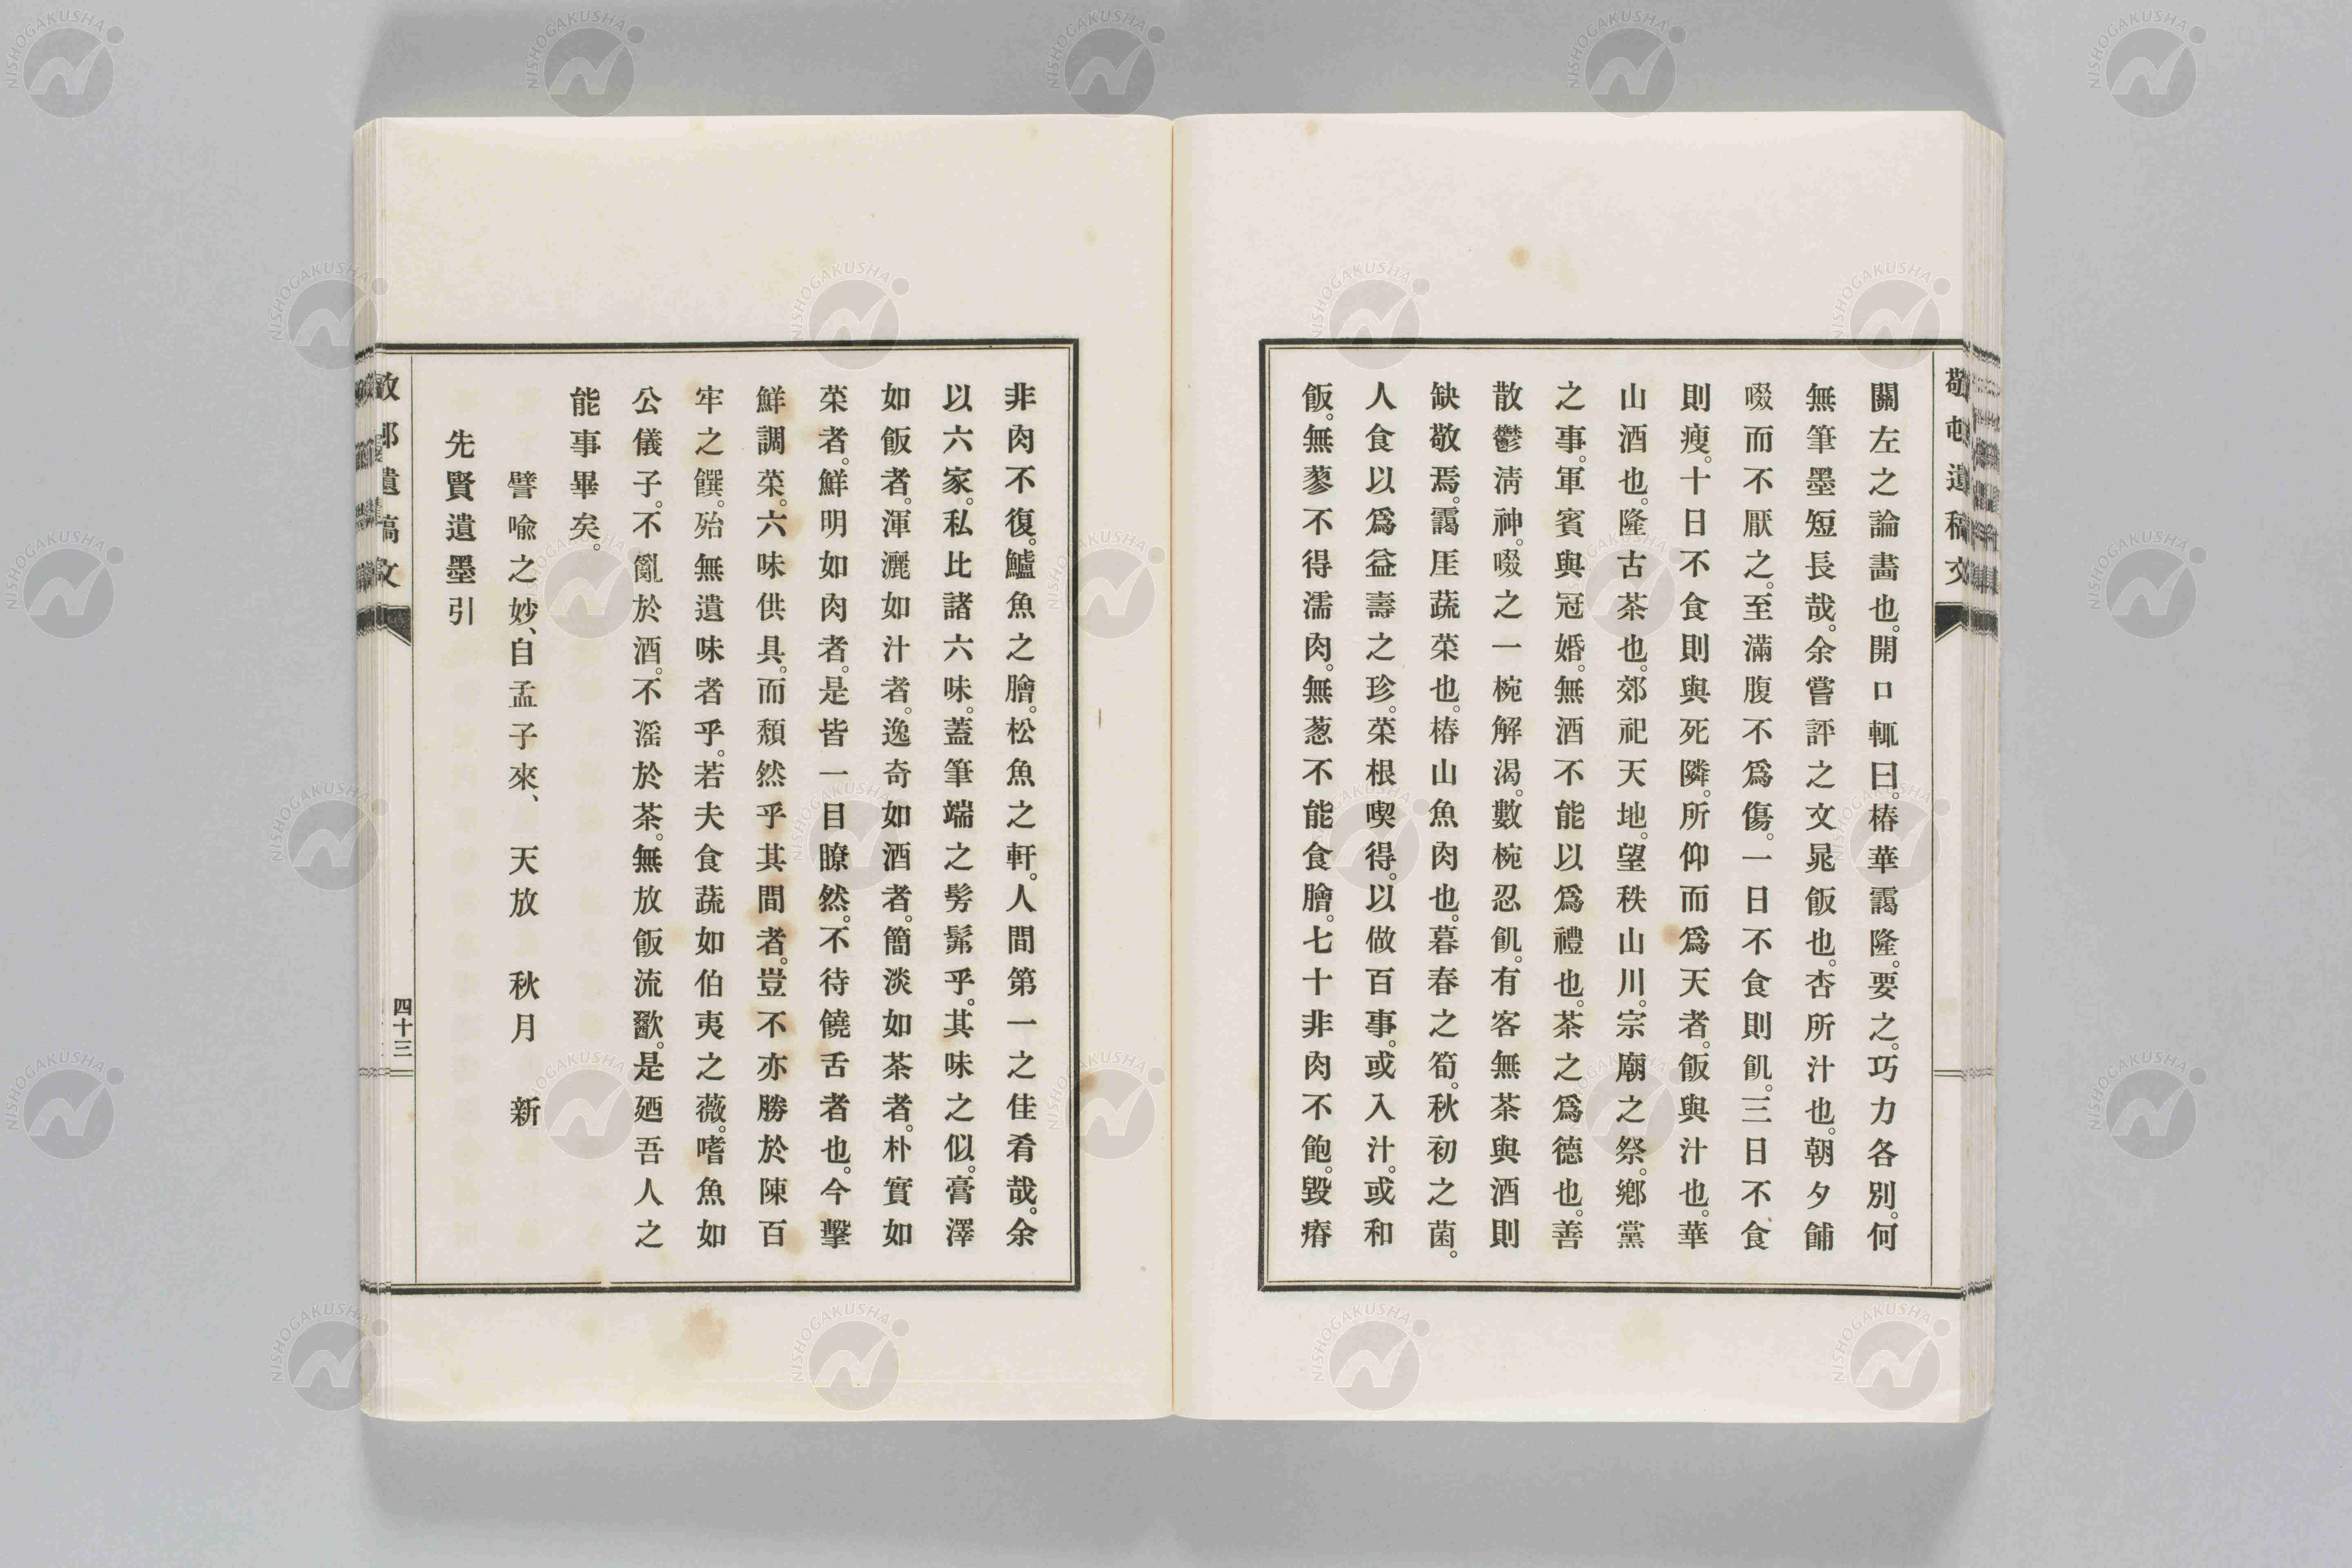 敬邨遺稿文
關左之論畵也。開口輒曰。椿華靄隆。要之。巧力各別。何
無筆墨短長哉。余嘗評之文晁飯也。杏所汁也。朝夕餔
啜而不厭之。至滿腹不爲傷。一日不食則飢。三日不食
則瘦。十日不食則與死隣。所仰而爲天者。飯與汁也。華
山酒也。隆古茶也。郊祀天地。望秩山川。宗廟之祭。鄕黨
之事。軍賓與冠婚。無酒不能以爲禮也。茶之爲德也。善
散鬱淸神。啜之一椀解渴。數椀忍飢。有客無茶與酒則
缺敬焉。靄厓蔬菜也。椿山魚肉也。暮春之筍。秋初之菌。
人食以爲益壽之珍。菜根喫得。以做百事。或入汁。或和
飯。無蓼不得濡肉。無葱不能食膾。七十非肉不飽。毀瘠
非肉不復。鱸魚之膾。松魚之軒。人間第一之佳肴哉。余
以六家。私比諸六味。蓋筆端之髣髴乎。其味之似。膏澤
如飯者。渾灑如汁者。逸奇如酒者。簡淡如茶者。朴實如
菜者。鮮明如肉者。是皆一目瞭然。不待饒舌者也。今擊
鮮調菜。六味供具。而頽然乎其間者。豈不亦勝於陳百
牢之饌。殆無遺味者乎。若夫食蔬如伯夷之薇。嗜魚如
公儀子。不亂於酒。不滛於茶。無放飯流歠。是廼吾人之
能事畢矣。
譬喩之妙、自孟子來、 天放 秋月 新
先賢遺墨引
遺稿文
四十三